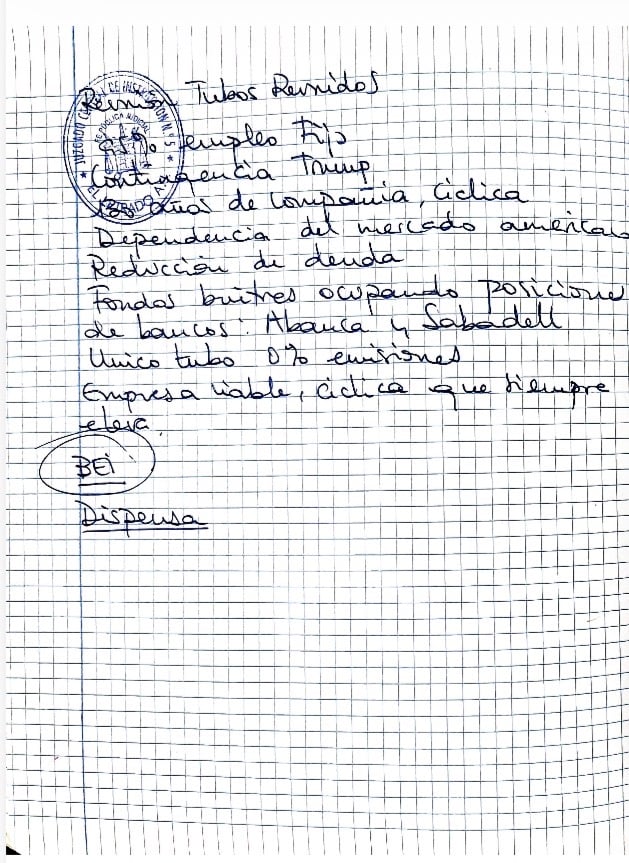 Reunión Tubos Reunidos
empleo fijo
Contingencia Trump
años de compañia, ciclica
Dependencia del mercado america
Reducción de deuda
Fondos buitres ocupando posicione
de bancos: Abanca y Sabadell
Unico tubo 0% emisiones
Empresa viable, ciclica que siempre
eleva.
BEI
Dispensa
JUZGADO CENTRAL DE INSTRUCCION N.º 5